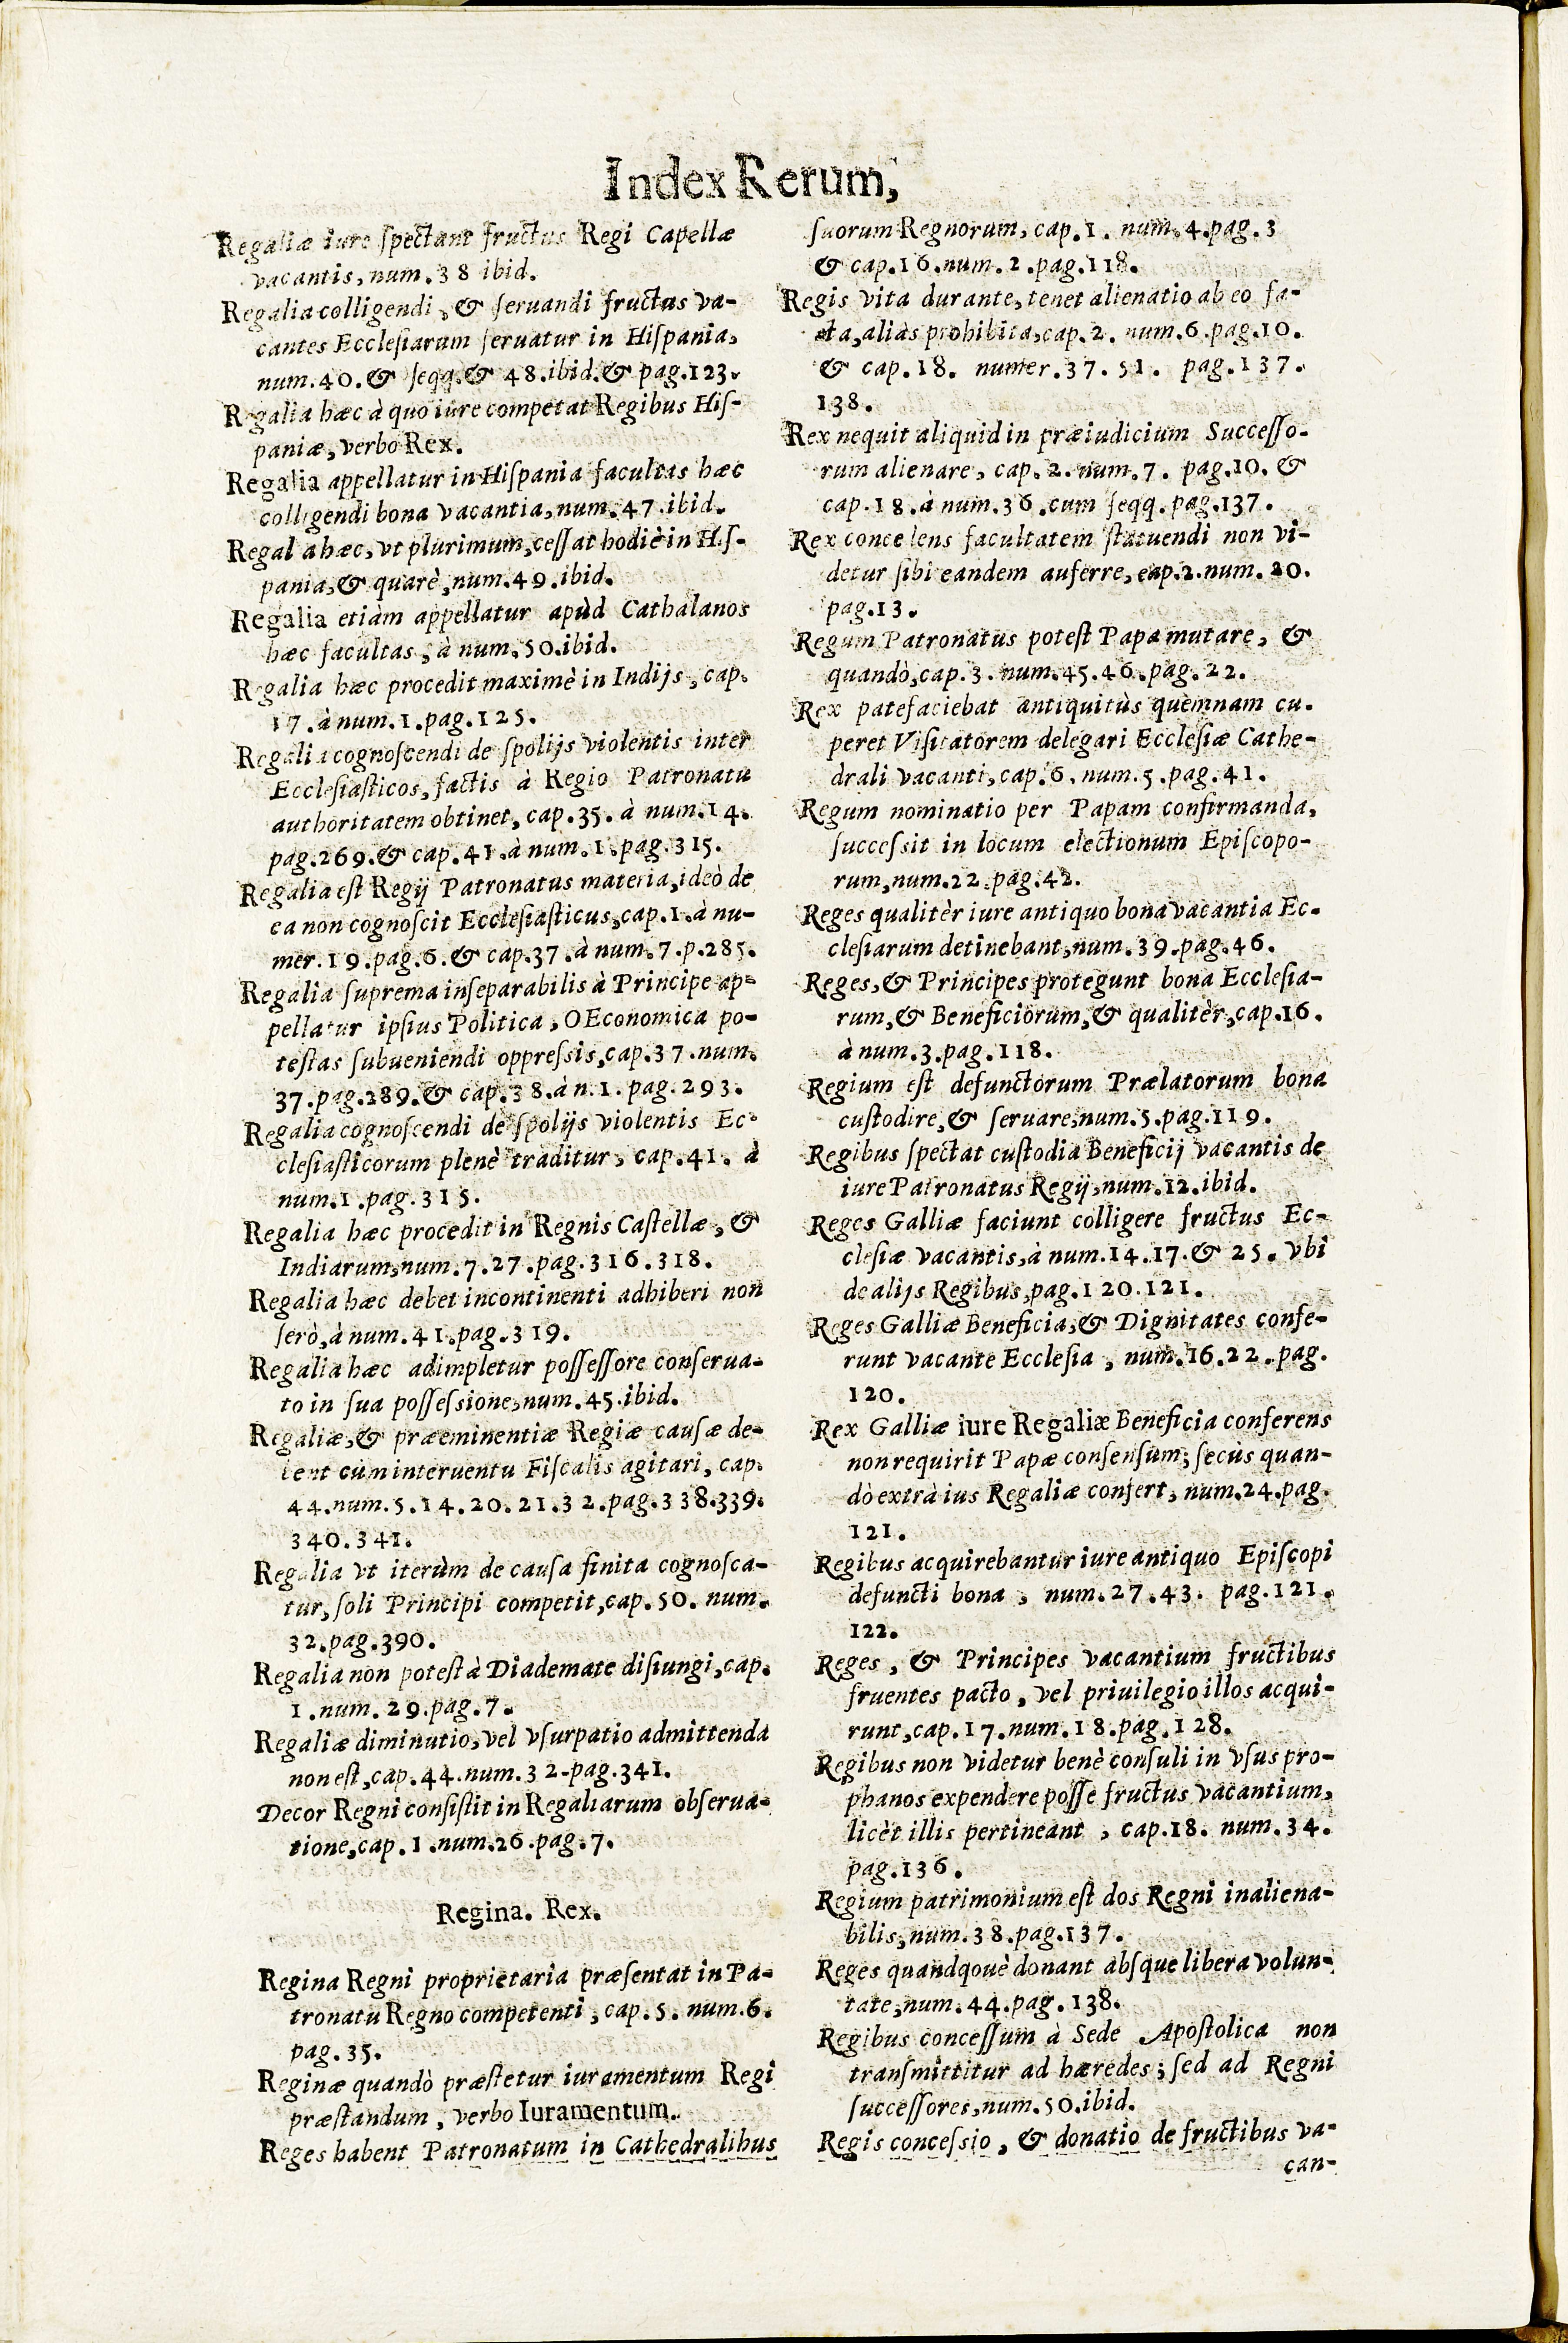 Index Rerum,
Regaliæ iure ſpectant fructus Regi Capellæ
vacantis, num.38 ibid.
Regalia colligendi, & ſeruandi fructus va-
cantes Eccleſiarum ſeruatur in Hiſpania,
num.40.& ſeqq.& 48.ibid.& pag.123.
Regalia hæc à quo iure competat Regibus Hiſ-
paniæ, verbo Rex.
Regalia appellatur in Hiſpania facultas hæc
colligendi bona vacantia, num.47.ibid.
Regalia hæc, vt plurimum, ceſſat hodiè in Hiſ-
pania, & quarè, num.49.ibid.
Regalia etiàm appellatur apùd Cathalanos
hæc facultas, à num.50.ibid.
Regalia hæc procedit maximè in Indijs, cap.
17.à num.1.pag.125.
Regalia cognoſcendi de ſpolijs violentis inter
Eccleſiaſticos, factis à Regio Patronatu
authoritatem obtinet, cap.35. à num.14.
pag.269.& cap.41.à num.1.pag.315.
Regalia eſt Regij Patronatus materia, ideò de
ea non cognoſcit Eccleſiaſticus, cap.1.à nu-
mer.19.pag.6.& cap.37.à num.7.p.285.
Regalia ſuprema inſeparabilis à Principe ap-
pellatur ipſius Politica, OEconomica po-
teſtas ſubueniendi oppreſsis, cap.37.num.
37.pag.289.& cap.38.à n.1.pag.293.
Regalia cognoſcendi de ſpolijs violentis Ec-
cleſiaſticorum plenè traditur, cap.41. à
num.1.pag.315.
Regalia hæc procedit in Regnis Caſtellæ, &
Indiarum, num.7.27.pag.316.318.
Regalia hæc debet incontinenti adhiberi non
ſerò, à num.41.pag.319.
Regalia hæc adimpletur poſſeſſore conſerua-
to in ſua poſſeſsione, num.45.ibid.
Regaliæ, & præeminentiæ Regiæ cauſæ de-
bent cùm interuentu Fiſcalis agitari, cap.
44.num.5.14.20.21.32.pag.338.339.
340.341.
Regalia vt iterùm de cauſa finita cognoſca-
tur, ſoli Principi competit, cap.50. num.
32.pag.390.
Regalia non poteſt à Diademate diſiungi, cap.
1.num.29.pag.7.
Regaliæ diminutio, vel vſurpatio admittenda
non eſt, cap.44.num.32.pag.341.
Decor Regni conſiſtit in Regaliarum obſerua-
tione, cap.1.num.26.pag.7.
Regina. Rex.
Regina Regni proprietaria præſentat in Pa-
tronatu Regno competenti, cap.5. num.6.
pag.35.
Reginæ quandò præſtetur iuramentum Regi
præſtandum, verbo Iuramentum.
Reges habent Patronatum in Cathedralibus
ſuorum Regnorum, cap.1. num.4.pag.3
& cap.16.num.2.pag.118.
Regis vita durante, tenet alienatio ab eo fa-
cta, aliàs prohibita, cap.2. num.6.pag.10.
& cap.18. numer.37.51. pag.137.
138.
Rex nequit aliquid in præiudicium Succeſſo-
rum alienare, cap.2.num.7. pag.10. &
cap.18.à num.36.cum ſeqq.pag.137.
Rex concedens facultatem ſtatuendi non vi-
detur ſibi eandem auferre, cap.2.num.20.
pag.13.
Regum Patronatus poteſt Papa mutare, &
quandò, cap.3.num.45.46.pag.22.
Rex patefaciebat antiquitùs quemnam cu-
peret Viſitatorem delegari Eccleſiæ Cathe-
drali vacanti, cap.6.num.5.pag.41.
Regum nominatio per Papam confirmanda,
ſucceſsit in locum electionum Epiſcopo-
rum, num.22.pag.42.
Reges qualitèr iure antiquo bona vacantia Ec-
cleſiarum detinebant, num.39.pag.46.
Reges, & Principes protegunt bona Eccleſia-
rum, & Beneficiorum, & qualitèr, cap.16.
à num.3.pag.118.
Regium eſt defunctorum Prælatorum bona
cuſtodire, & ſeruare, num.5.pag.119.
Regibus ſpectat cuſtodia Beneficij vacantis de
iure Patronatus Regij, num.12.ibid.
Reges Galliæ faciunt colligere fructus Ec-
cleſiæ vacantis, à num.14.17.& 25. vbi
de alijs Regibus, pag.120.121.
Reges Galliæ Beneficia, & Dignitates confe-
runt vacante Eccleſia, num.16.22.pag.
120.
Rex Galliæ iure Regaliæ Beneficia conferens
non requirit Papæ conſenſum; ſecùs quan-
dò extrà ius Regaliæ confert, num.24.pag.
121.
Regibus acquirebantur iure antiquo Epiſcopi
defuncti bona, num.27.43. pag.121.
122.
Reges, & Principes vacantium fructibus
fruentes pacto, vel priuilegio illos acqui-
runt, cap.17.num.18.pag.128.
Regibus non videtur benè conſuli in vſus pro-
phanos expendere poſſe fructus vacantium,
licèt illis pertineant, cap.18. num.34.
pag.136.
Regium patrimonium eſt dos Regni inaliena-
bilis, num.38.pag.137.
Reges quandqouè donant abſque libera volun-
tate, num.44.pag.138.
Regibus conceſſum à Sede Apoſtolica non
tranſmittitur ad hæredes; ſed ad Regni
ſucceſſores, num.50.ibid.
Regis conceſsio, & donatio de fructibus va-
can-